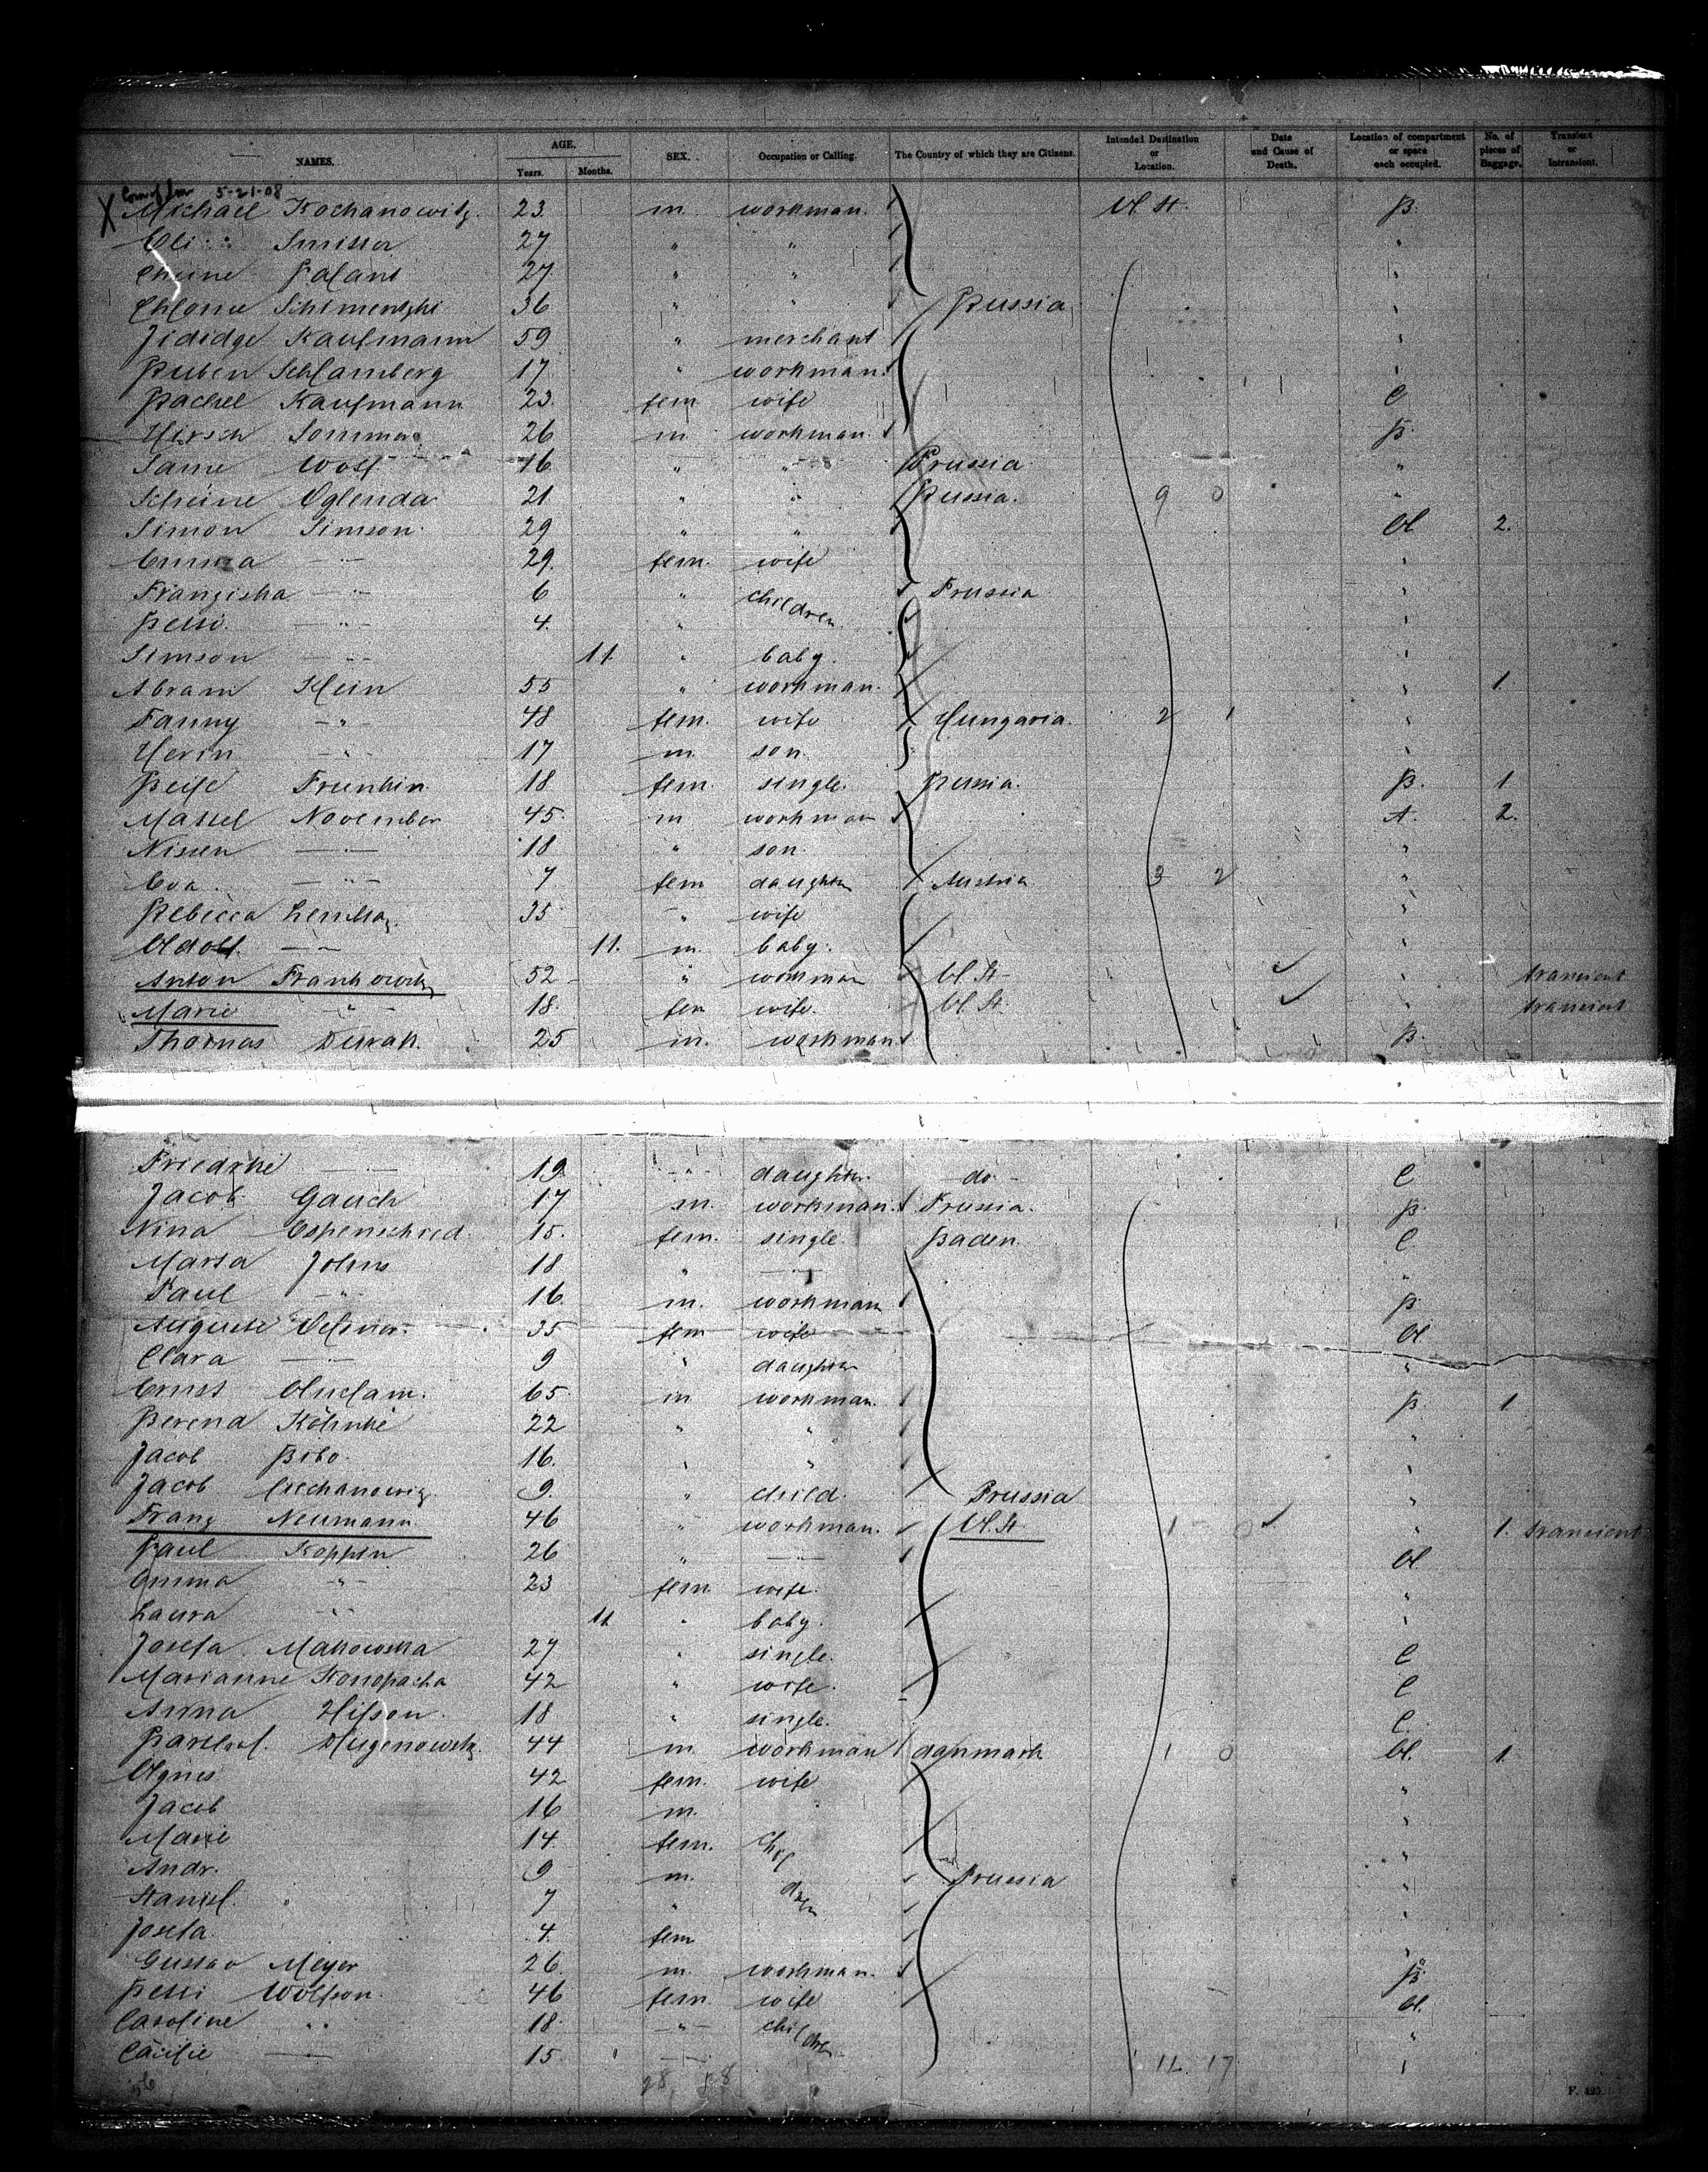 NAMES. AGE. Years. Months. SEX. Occupation or Calling. The Country of which they are Citizens. Intended Destination or Location. Date and Cause of Death. Location of compartment or space each occupied. No. of pieces of Baggage. Transient or Intransient.
5-21-08
X Michael Kochanowitz. 23. m. workman. U. St. B.
Eli Smisser 27 " " "
27 " " "
36 " " Russia "
Jididge Kaufmann 59 " merchant "
Ruben Schlamberg 17 " workman. "
Rachel Kaufmann 23. fem. wife C
Hirsch Sommer 26 m workman. B.
Wolf 16 " " Prussia "
Scheine Oglenda 21 " " Russia. 9 0 "
Simon Simson. 29 " " U 2.
Emma " 29. fem. wife "
Franziska " 6 " children Prussia "
" 4. " "
Simson " 11. " baby. "
Abram Klein 55 " workman. " 1.
Fanny " 48 fem. wife Hungaria. 2 1 "
" 17 m. son. "
18 fem. single. Russia. B. 1
Massel November 45. m workman A. 2.
Nissen " 18 " son. "
Eva " 7 fem daughter Austria 3 2 "
Rebecca 35 " wife "
Adolf. " 11. m. baby. "
Anton 52 " workman U. St. " transient
Marie " 18. fem wife. U. St. transient
Thomas 25 m. workman B.
" 19. " daughter. do. C
Jacob Gauch 17 m. workman. Prussia. B.
Nina Espenschied. 15. fem. single. Baden. C
Marta Johns 18 " " "
Paul " 16. m. workman B.
Auguste 35 fem wife U
Clara " 9 " daughter "
Ernst 65 m workman. B. 1
Berend Köhnke 22 " " "
Jacob Bibo. 16. " " "
Jacob Ciechanowiz. 9. " child. Prussia "
Franz Neumann 46 " workman. U. St. 1 0 " 1. transient
Paul Koppen 26 " " U
Emma " 23 fem wife. "
Laura " 11 " baby. "
Josefa Makowska 27 " single. C
Marianne Konopacka 42 " wife. C
Anna 18 " single. C.
44 m. workman danmark 1 0 U. 1.
Agnes 42 fem. wife "
Jacob 16 m. "
Marie 14 fem. chil "
Andr. 9 m. Prussia "
Stanisl. " 7 " dren "
Josefa 4. fem "
Gustav Meyer 26. m. workman. B.
Wolfson. 46 fem. wife U.
Caroline " 18. " children "
Cäcilie " 15. " 12 17 "
28 58
F. 425.